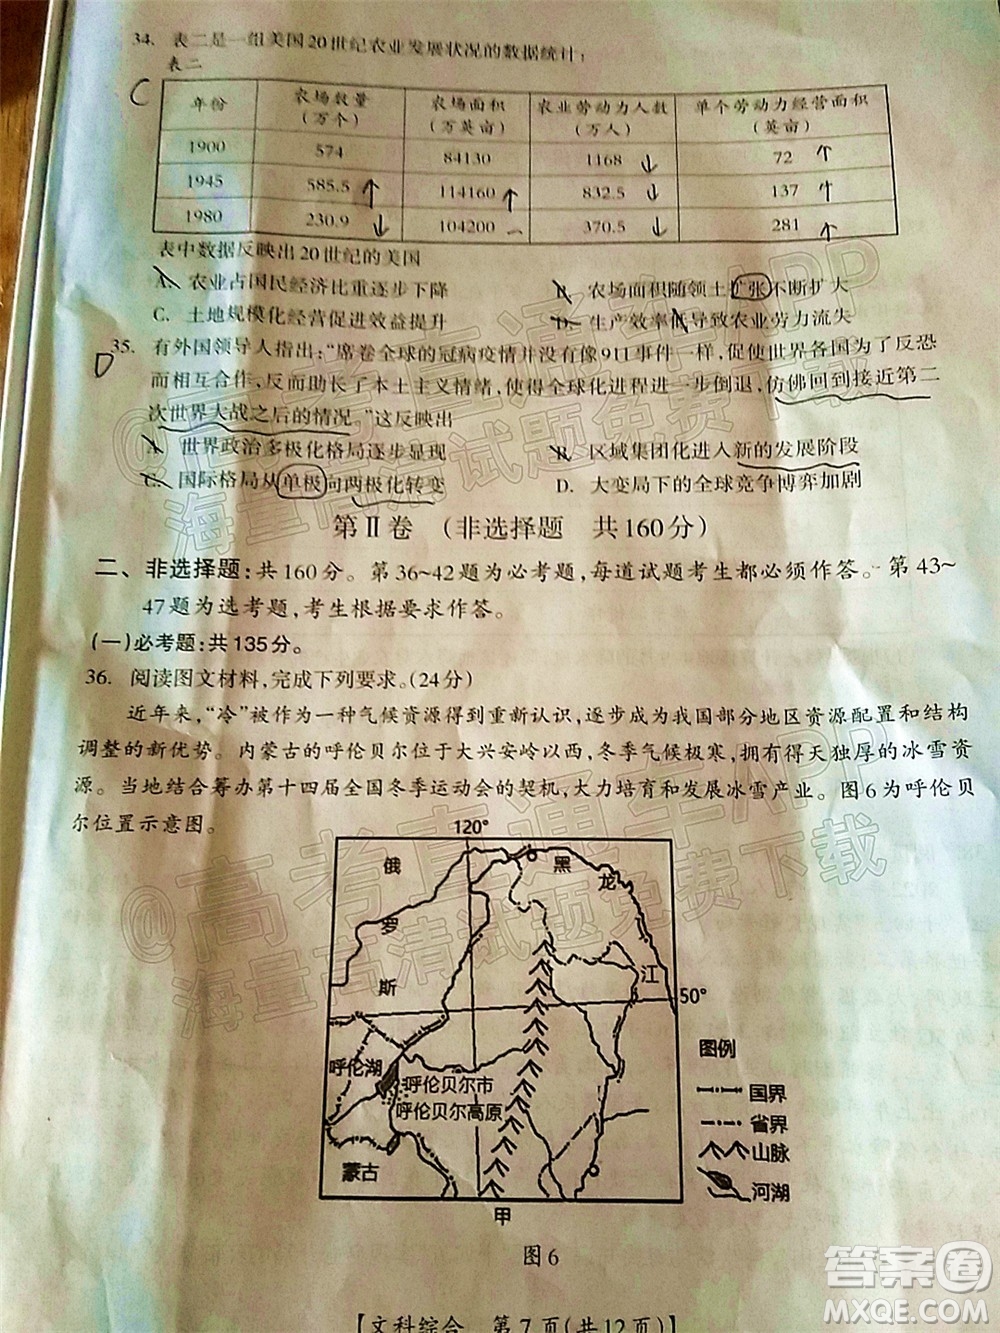 34. 表二是一组美国20世纪农业发展状况的数据统计：
表二
C
年份 农场数量（万个） 农场面积（万英亩） 农业劳动力人数（万人） 单个劳动力经营面积（英亩）
1900 574 84130 1168 ↓ 72 ↑
1945 585.5 ↑ 114160 ↑ 832.5 ↓ 137 ↑
1980 230.9 ↓ 104200 370.5 ↓ 281 ↑
表中数据反映出20世纪的美国
A. 农业占国民经济比重逐步下降 B. 农场面积随领土扩张不断扩大
C. 土地规模化经营促进效益提升 D. 生产效率低导致农业劳力流失
D
35. 有外国领导人指出：“席卷全球的冠病疫情并没有像911事件一样，促使世界各国为了反恐
而相互合作，反而助长了本土主义情绪，使得全球化进程进一步倒退，仿佛回到接近第二
次世界大战之后的情况。”这反映出
A. 世界政治多极化格局逐步显现 B. 区域集团化进入新的发展阶段
C. 国际格局从单极向两极化转变 D. 大变局下的全球竞争博弈加剧
第Ⅱ卷 （非选择题 共160分）
二、非选择题：共160分。第36~42题为必考题，每道试题考生都必须作答。第43~
47题为选考题，考生根据要求作答。
（一）必考题：共135分。
36. 阅读图文材料，完成下列要求。（24分）
近年来，“冷”被作为一种气候资源得到重新认识，逐步成为我国部分地区资源配置和结构
调整的新优势。内蒙古的呼伦贝尔位于大兴安岭以西，冬季气候极寒，拥有得天独厚的冰雪资
源。当地结合筹办第十四届全国冬季运动会的契机，大力培育和发展冰雪产业。图6为呼伦贝
尔位置示意图。
120°
俄
罗
斯
黑
龙
江
50°
呼伦湖
呼伦贝尔市
呼伦贝尔高原
蒙古
甲
图例
国界
省界
山脉
河湖
图6
【文科综合 第7页（共12页）】
@高考直通车APP
海量高清试题免费下载
@高考直通车APP
海量高清试题免费下载
答案圈
MXQE.COM